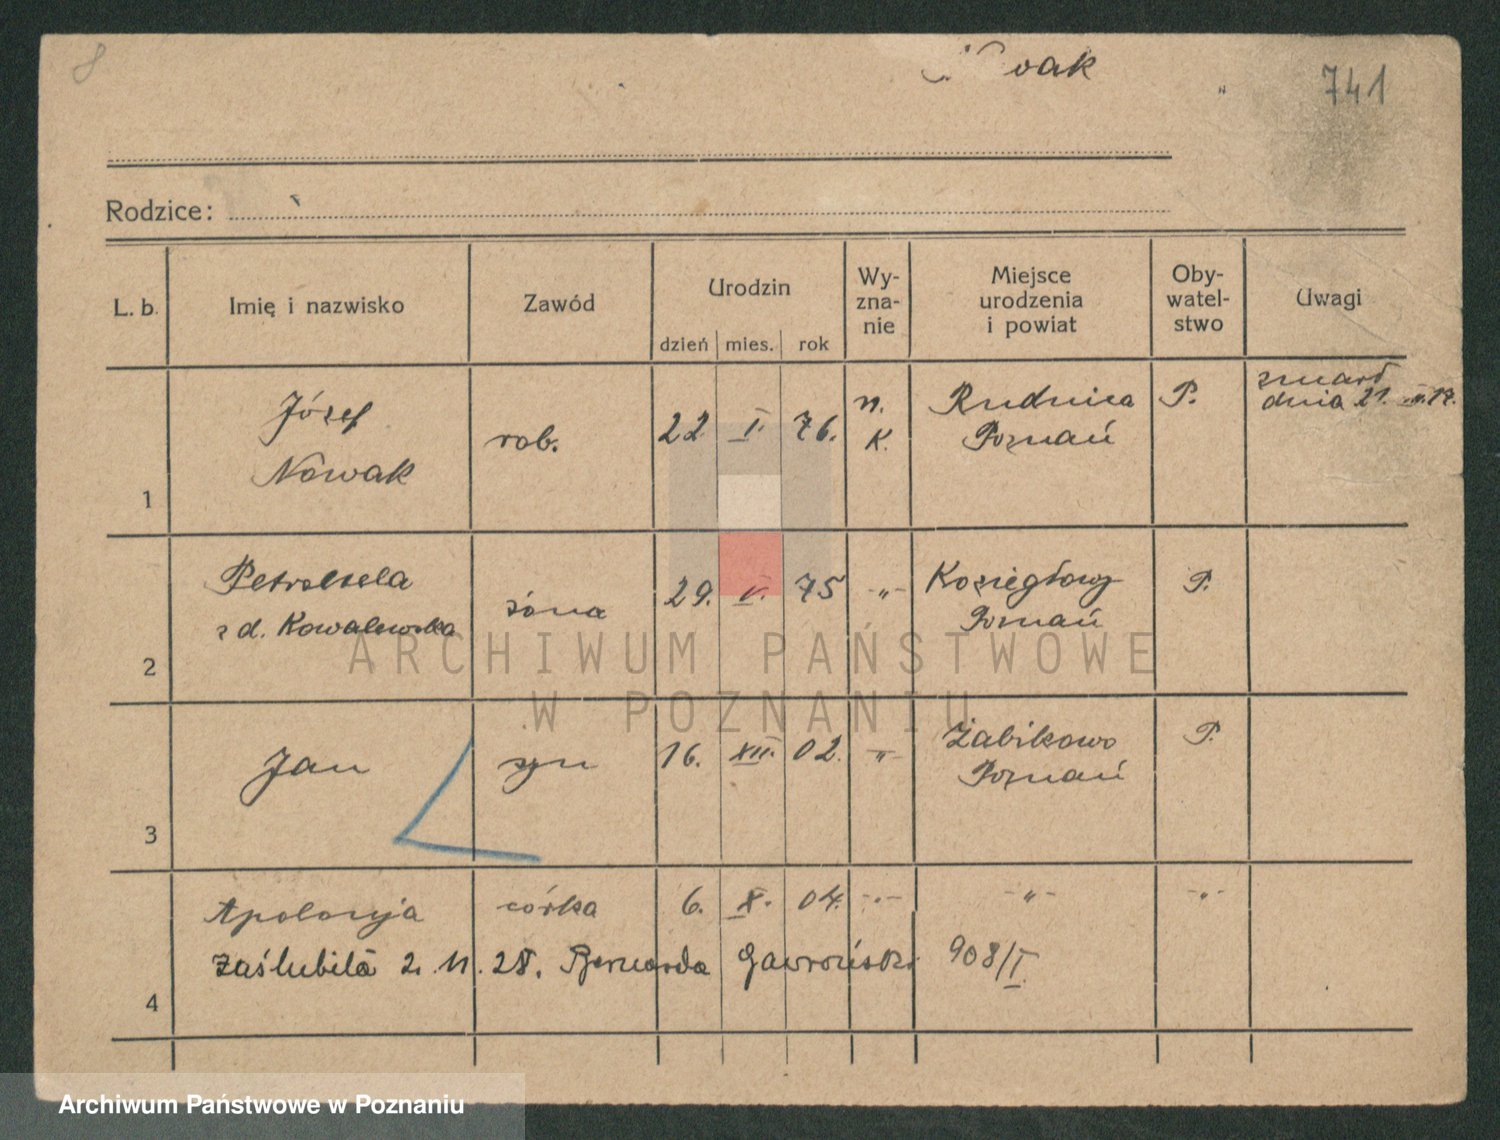 8
741
Rodzice:
L. b. Imię i nazwisko Zawód Urodzin dzień mies. rok Wy-zna-nie Miejsce urodzenia i powiat Oby-watel-stwo Uwagi
1 Józef Nowak rob. 22 I. 76. n. K. Rudnica Poznań P. zmarł dnia 21. 17.
2 Petronela z d. Kowalewska żona 29. V. 75 -„- Koziegłowy Poznań P.
3 Jan syn 16. XII. 02. -„- Żabikowo Poznań P.
4 Apolonja córka 6. X. 04. -„- -„- -„-
zaślubiła 2. 11. 28. Bernarda Gawroński 908/I.
ARCHIWUM PAŃSTWOWE
W POZNANIU
Archiwum Państwowe w Poznaniu